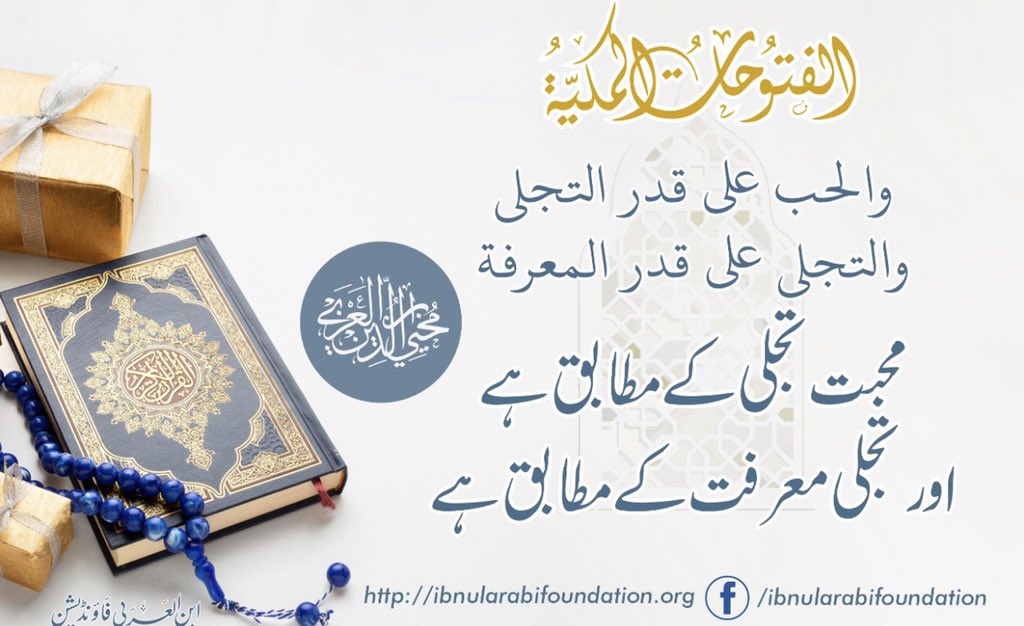 الفتوحات المكية
والحب على قدر التجلى
والتجلى على قدر المعرفة
محيي الدين ابن العربي
محبت تجلی کے مطابق ہے
اور تجلی معرفت کے مطابق ہے
القرآن الكريم
ابن العربی فاؤنڈیشن
http://ibnularabifoundation.org
f /ibnularabifoundation